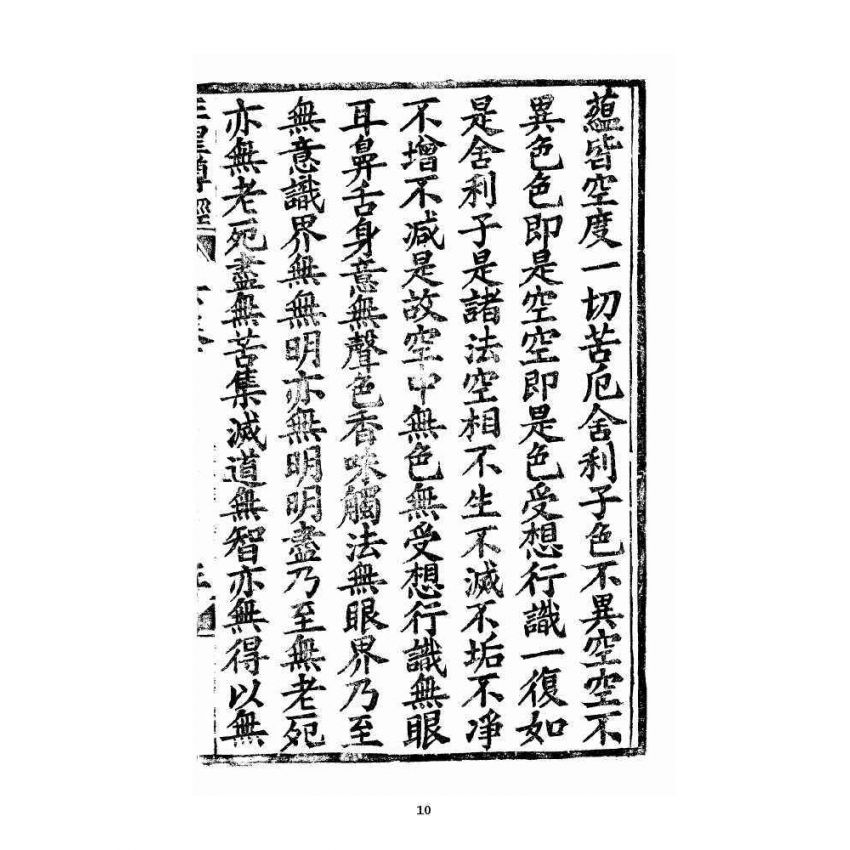 蘊皆空度一切苦厄舍利子色不異空空不
異色色即是空空即是色受想行識一復如
是舍利子是諸法空相不生不滅不垢不凈
不增不减是故空中無色無受想行識無眼
耳鼻舌身意無聲色香味觸法無眼界乃至
無意識界無無明亦無明明盡乃至無老死
亦無老死盡無苦集滅道無智亦無得以無
10